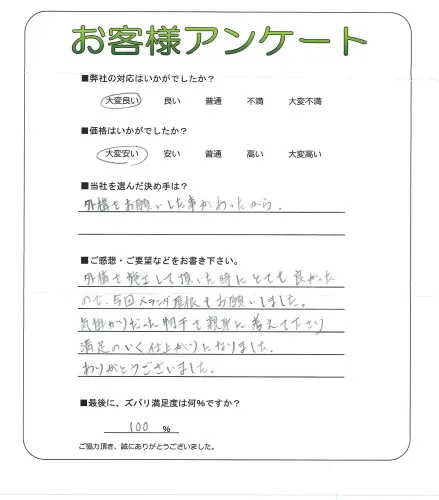 お客様アンケート
■弊社の対応はいかがでしたか?
大変良い 良い 普通 不満 大変不満
■価格はいかがでしたか?
大変安い 安い 普通 高い 大変高い
■当社を選んだ決め手は?
外構をお願いした事があったから。
■ご感想・ご要望などをお書き下さい。
外構を施工して頂いた時にとても良かった
ので、今回ベランダ屋根をお願いしました。
気掛かりだった を親身に考えて下さり
満足のいく仕上がりになりました。
ありがとうございました。
■最後に、ズバリ満足度は何%ですか?
100 %
ご協力頂き、誠にありがとうございました。